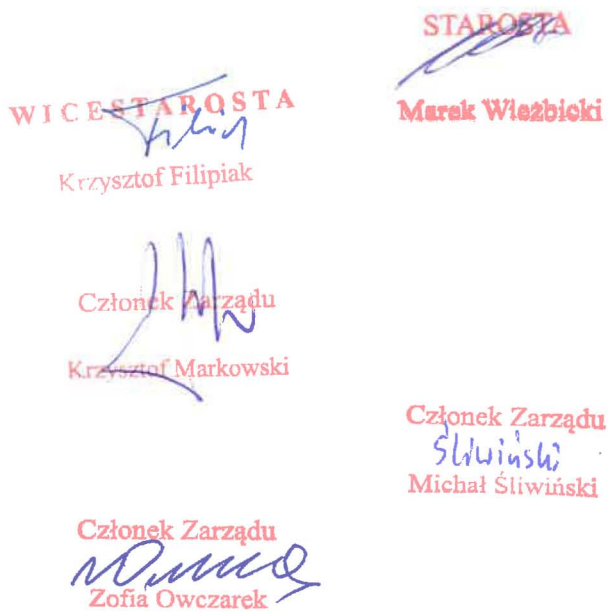 STAROSTA
Marek Wieżbicki
WICESTAROSTA
Filip
Krzysztof Filipiak
Członek Zarządu
Krzysztof Markowski
Członek Zarządu
Śliwiński
Michał Śliwiński
Członek Zarządu
Zofia Owczarek